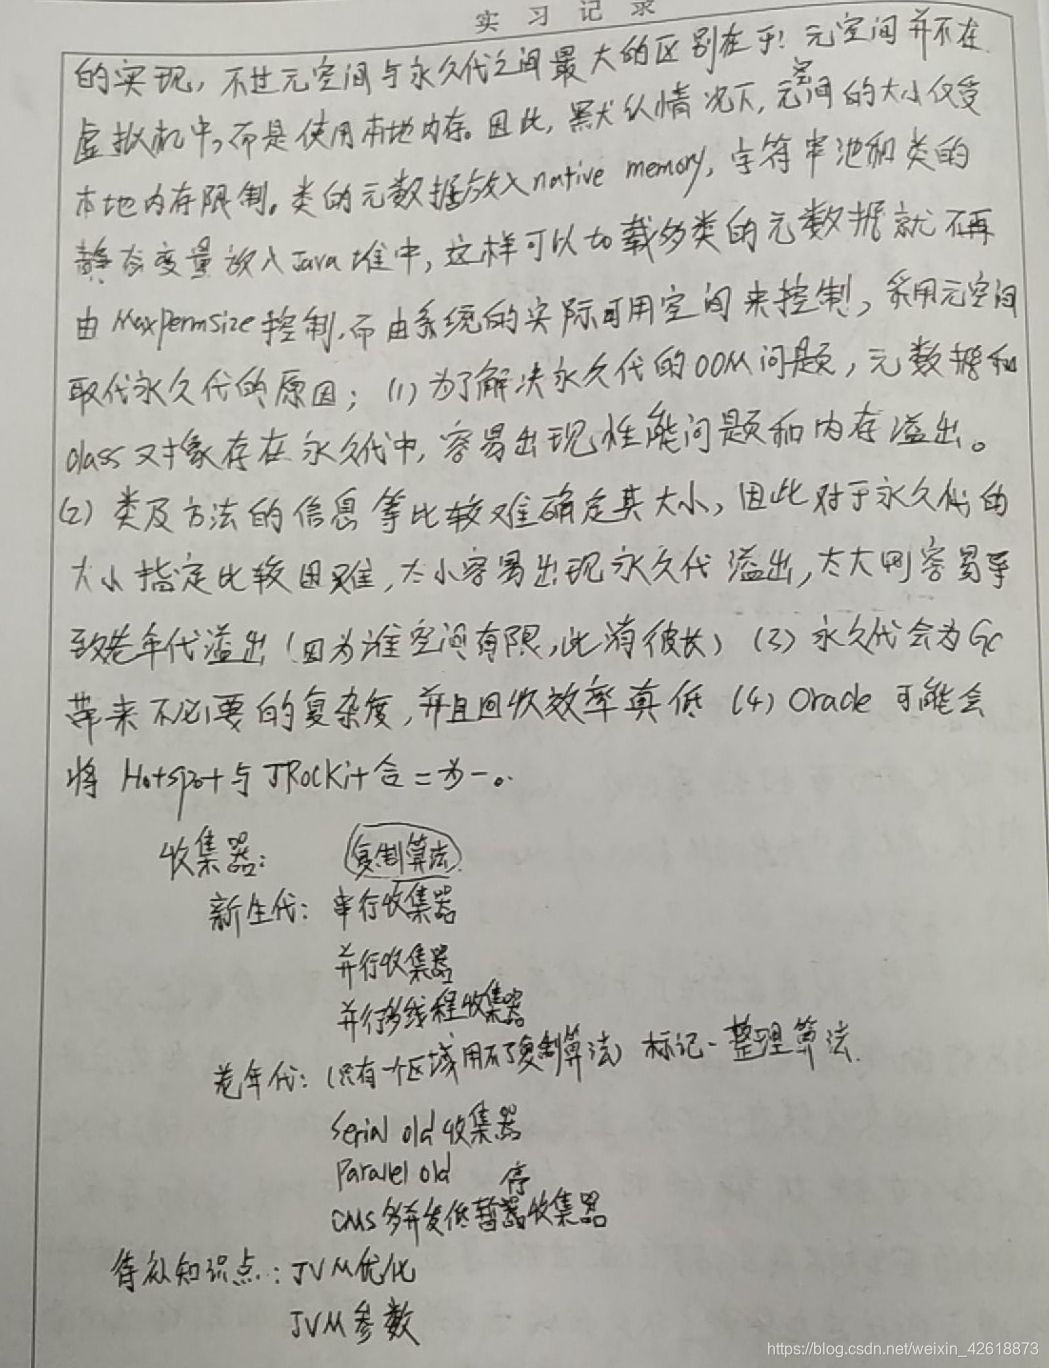 实习记录
的实现，不过元空间与永久代之间最大的区别在于：元空间并不在
虚拟机中，而是使用本地内存。因此，默认情况下，元空间的大小仅受
本地内存限制。类的元数据放入native memory，字符串池和类的
静态变量放入Java堆中，这样可以加载多类的元数据就不再
由MaxPermSize控制，而由系统的实际可用空间来控制，采用元空间
取代永久代的原因；(1)为了解决永久代的OOM问题，元数据和
class对象存在永久代中，容易出现性能问题和内存溢出。
(2)类及方法的信息等比较难确定其大小，因此对于永久代的
大小指定比较困难，太小容易出现永久代溢出，太大则容易导
致老年代溢出（因为堆空间有限，此消彼长）(3)永久代会为GC
带来不必要的复杂度，并且回收效率真低 (4)Oracle可能会
将Hotspot与JRockit合二为一。
收集器： 复制算法
新生代：串行收集器
并行收集器
并行多线程收集器
老年代：（只有一个区域用不了复制算法）标记-整理算法
Serial old收集器
Parallel old
CMS多并发低暂停收集器
待补知识点：JVM优化
JVM参数
https://blog.csdn.net/weixin_42618873